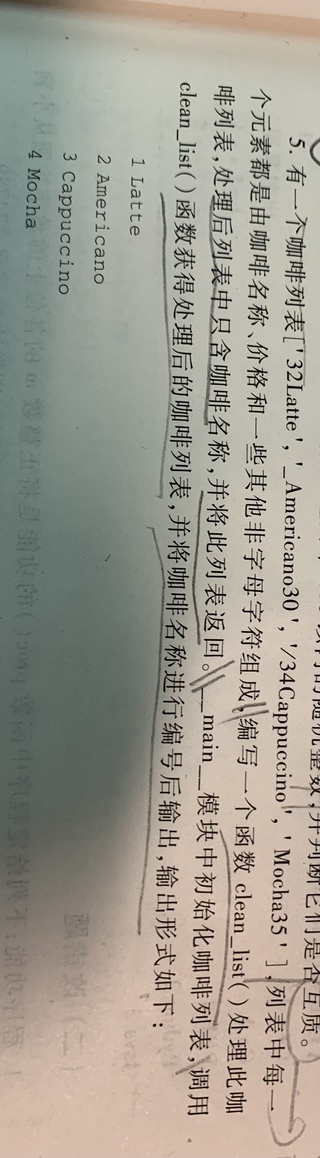 否互质。
5. 有一个咖啡列表['32Latte', '_Americano30', '/34Cappuccino', 'Mocha35'],列表中每一
个元素都是由咖啡名称、价格和一些其他非字母字符组成,编写一个函数 clean_list()处理此咖
啡列表,处理后列表中只含咖啡名称,并将此列表返回。__main__模块中初始化咖啡列表,调用
clean_list()函数获得处理后的咖啡列表,并将咖啡名称进行编号后输出,输出形式如下:
1 Latte
2 Americano
3 Cappuccino
4 Mocha